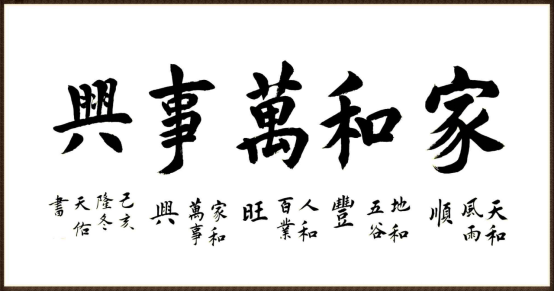 家和萬事興
天和風雨順
地和五谷豐
人和百業旺
家和萬事興
己亥隆冬天佑書